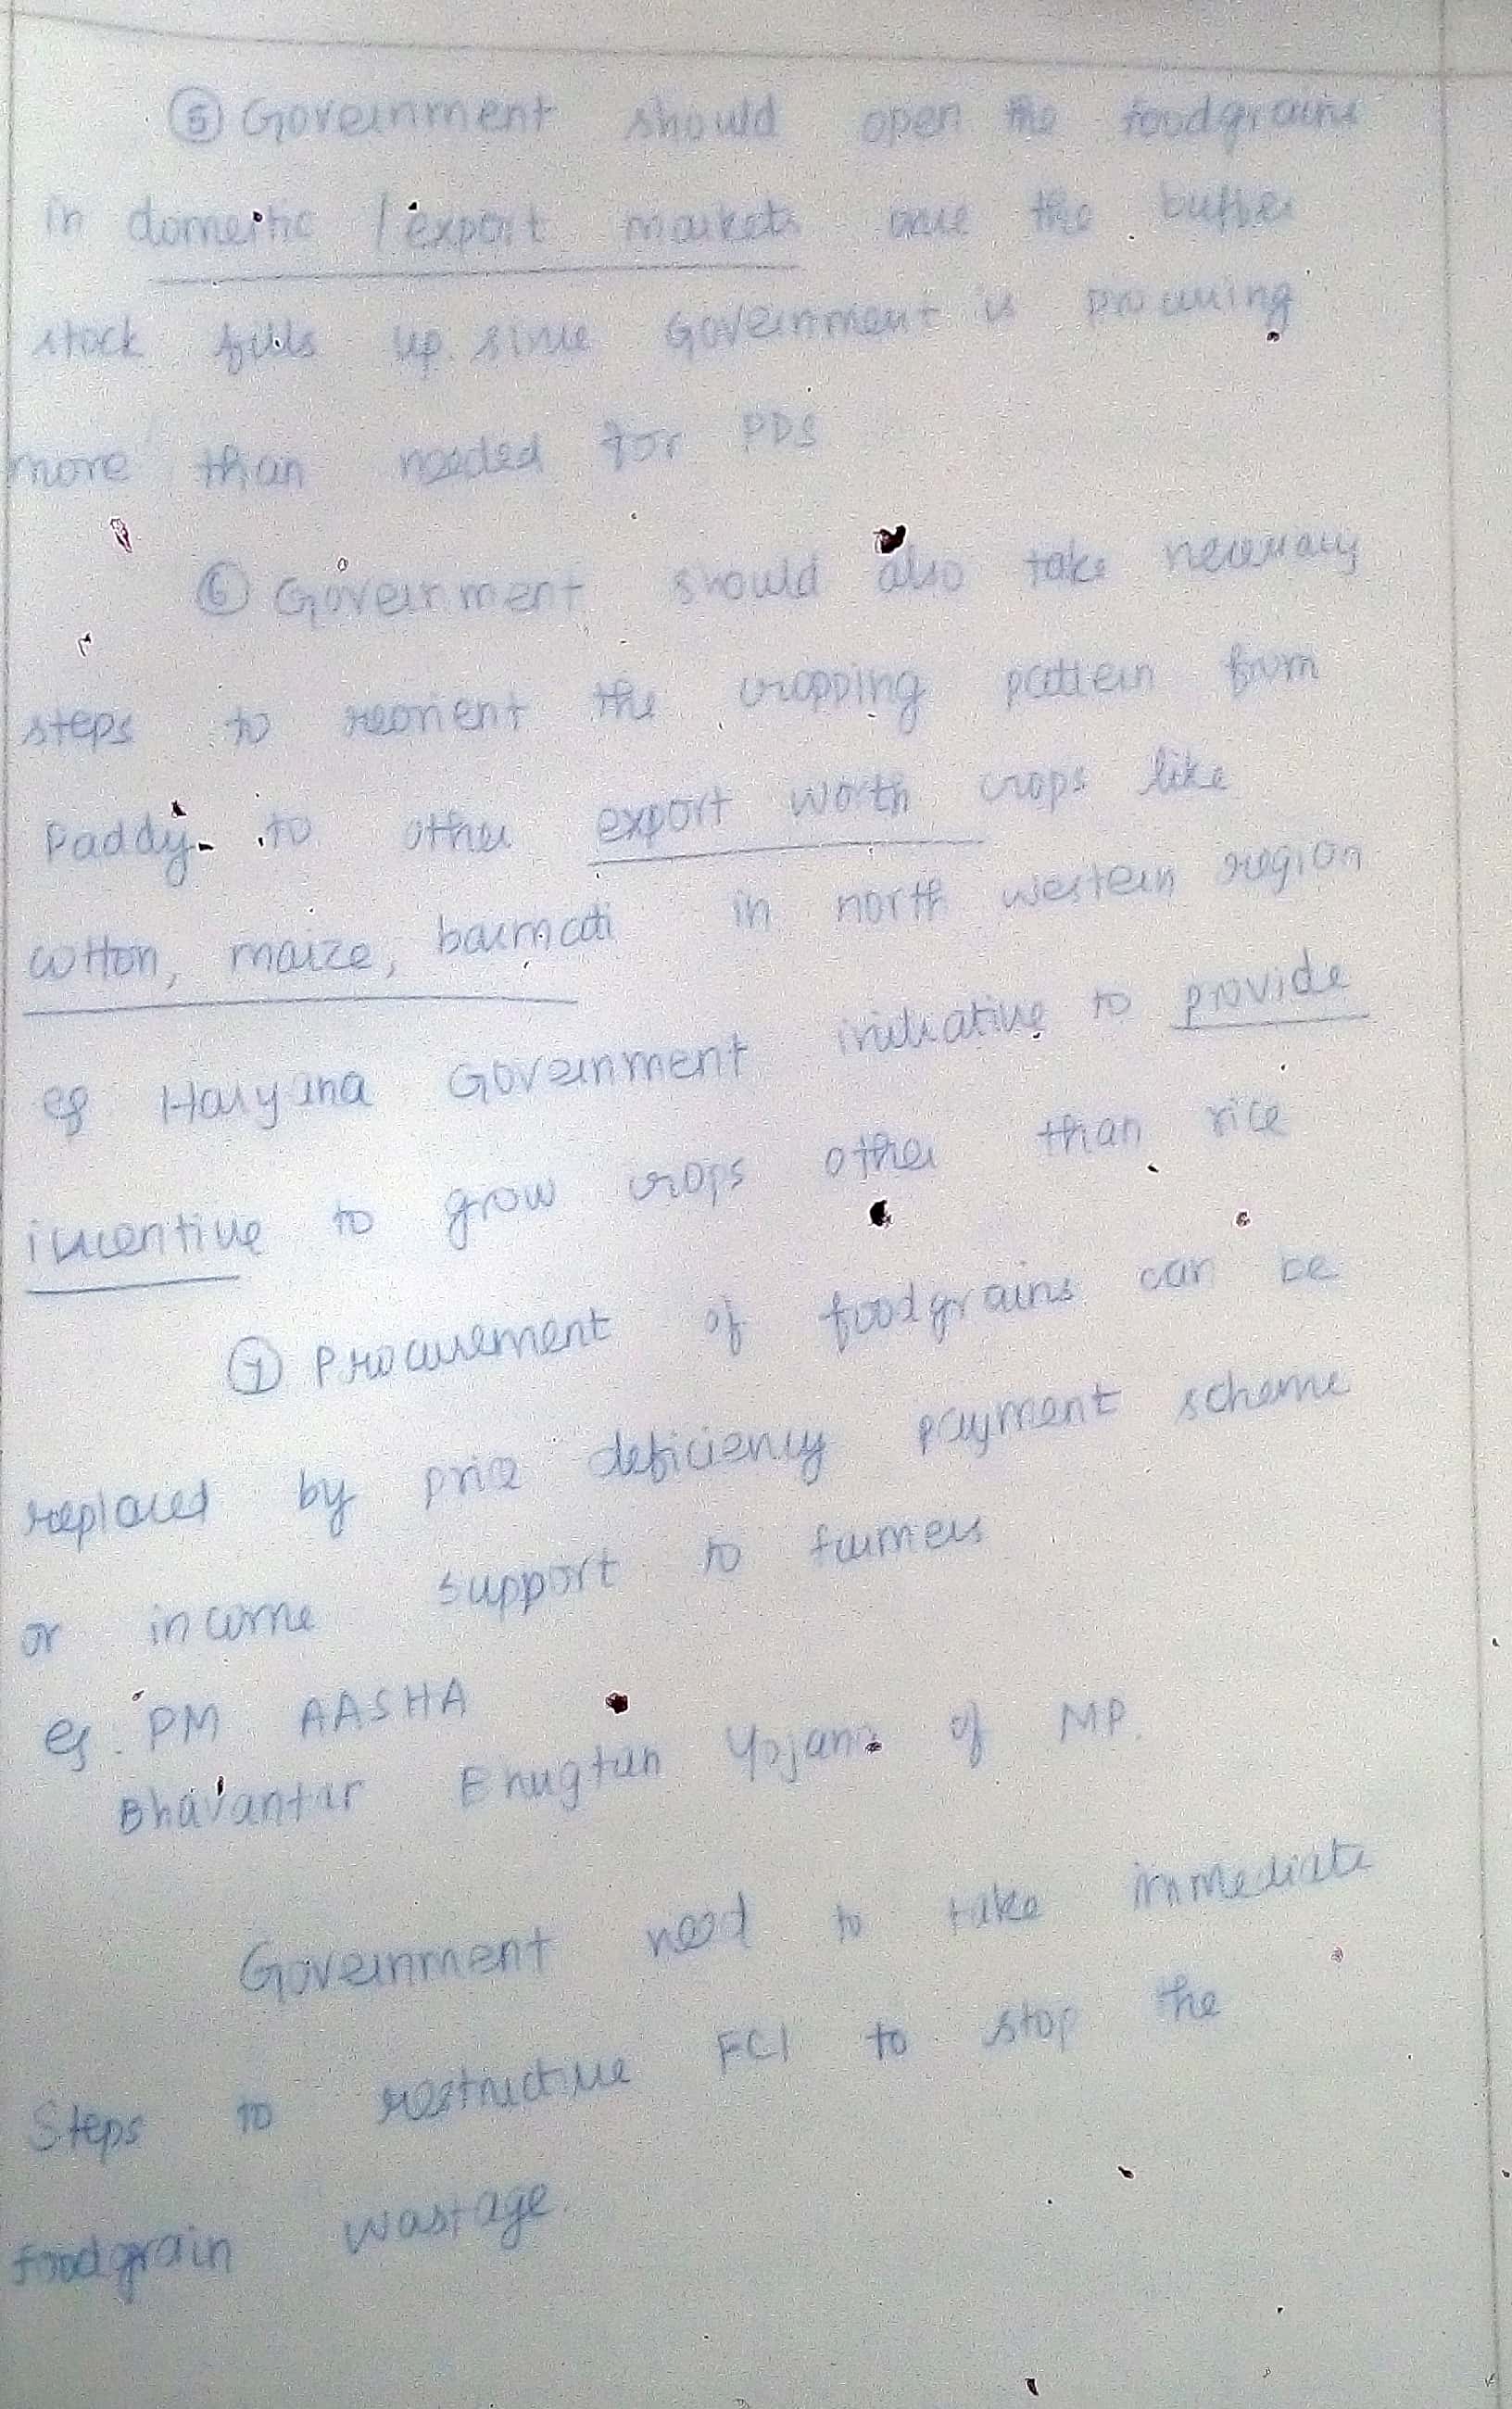 ⑤ Government should open the foodgrains
in domestic / export markets once the buffer
stock fills up since Government is procuring
more than needed for PDS
⑥ Government should also take necessary
steps to reorient the cropping pattern from
Paddy to other export worth crops like
cotton, maize, basmati in north western region
eg Haryana Government initiative to provide
incentive to grow crops other than rice
⑦ Procurement of foodgrains can be
replaced by price deficiency payment scheme
or income support to farmers
eg. PM AASHA
Bhavantar Bhugtan Yojana of MP.
Government need to take immediate
Steps to restructure FCI to stop the
foodgrain wastage.